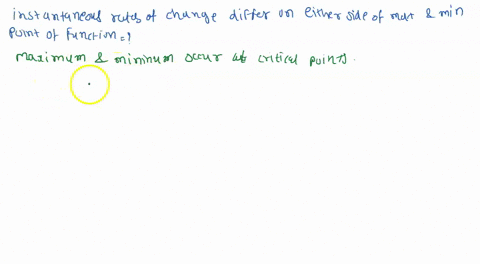 instantaneous rates of change differ on either side of max & min
point of function.?
maximum & mininum occur at critical points.